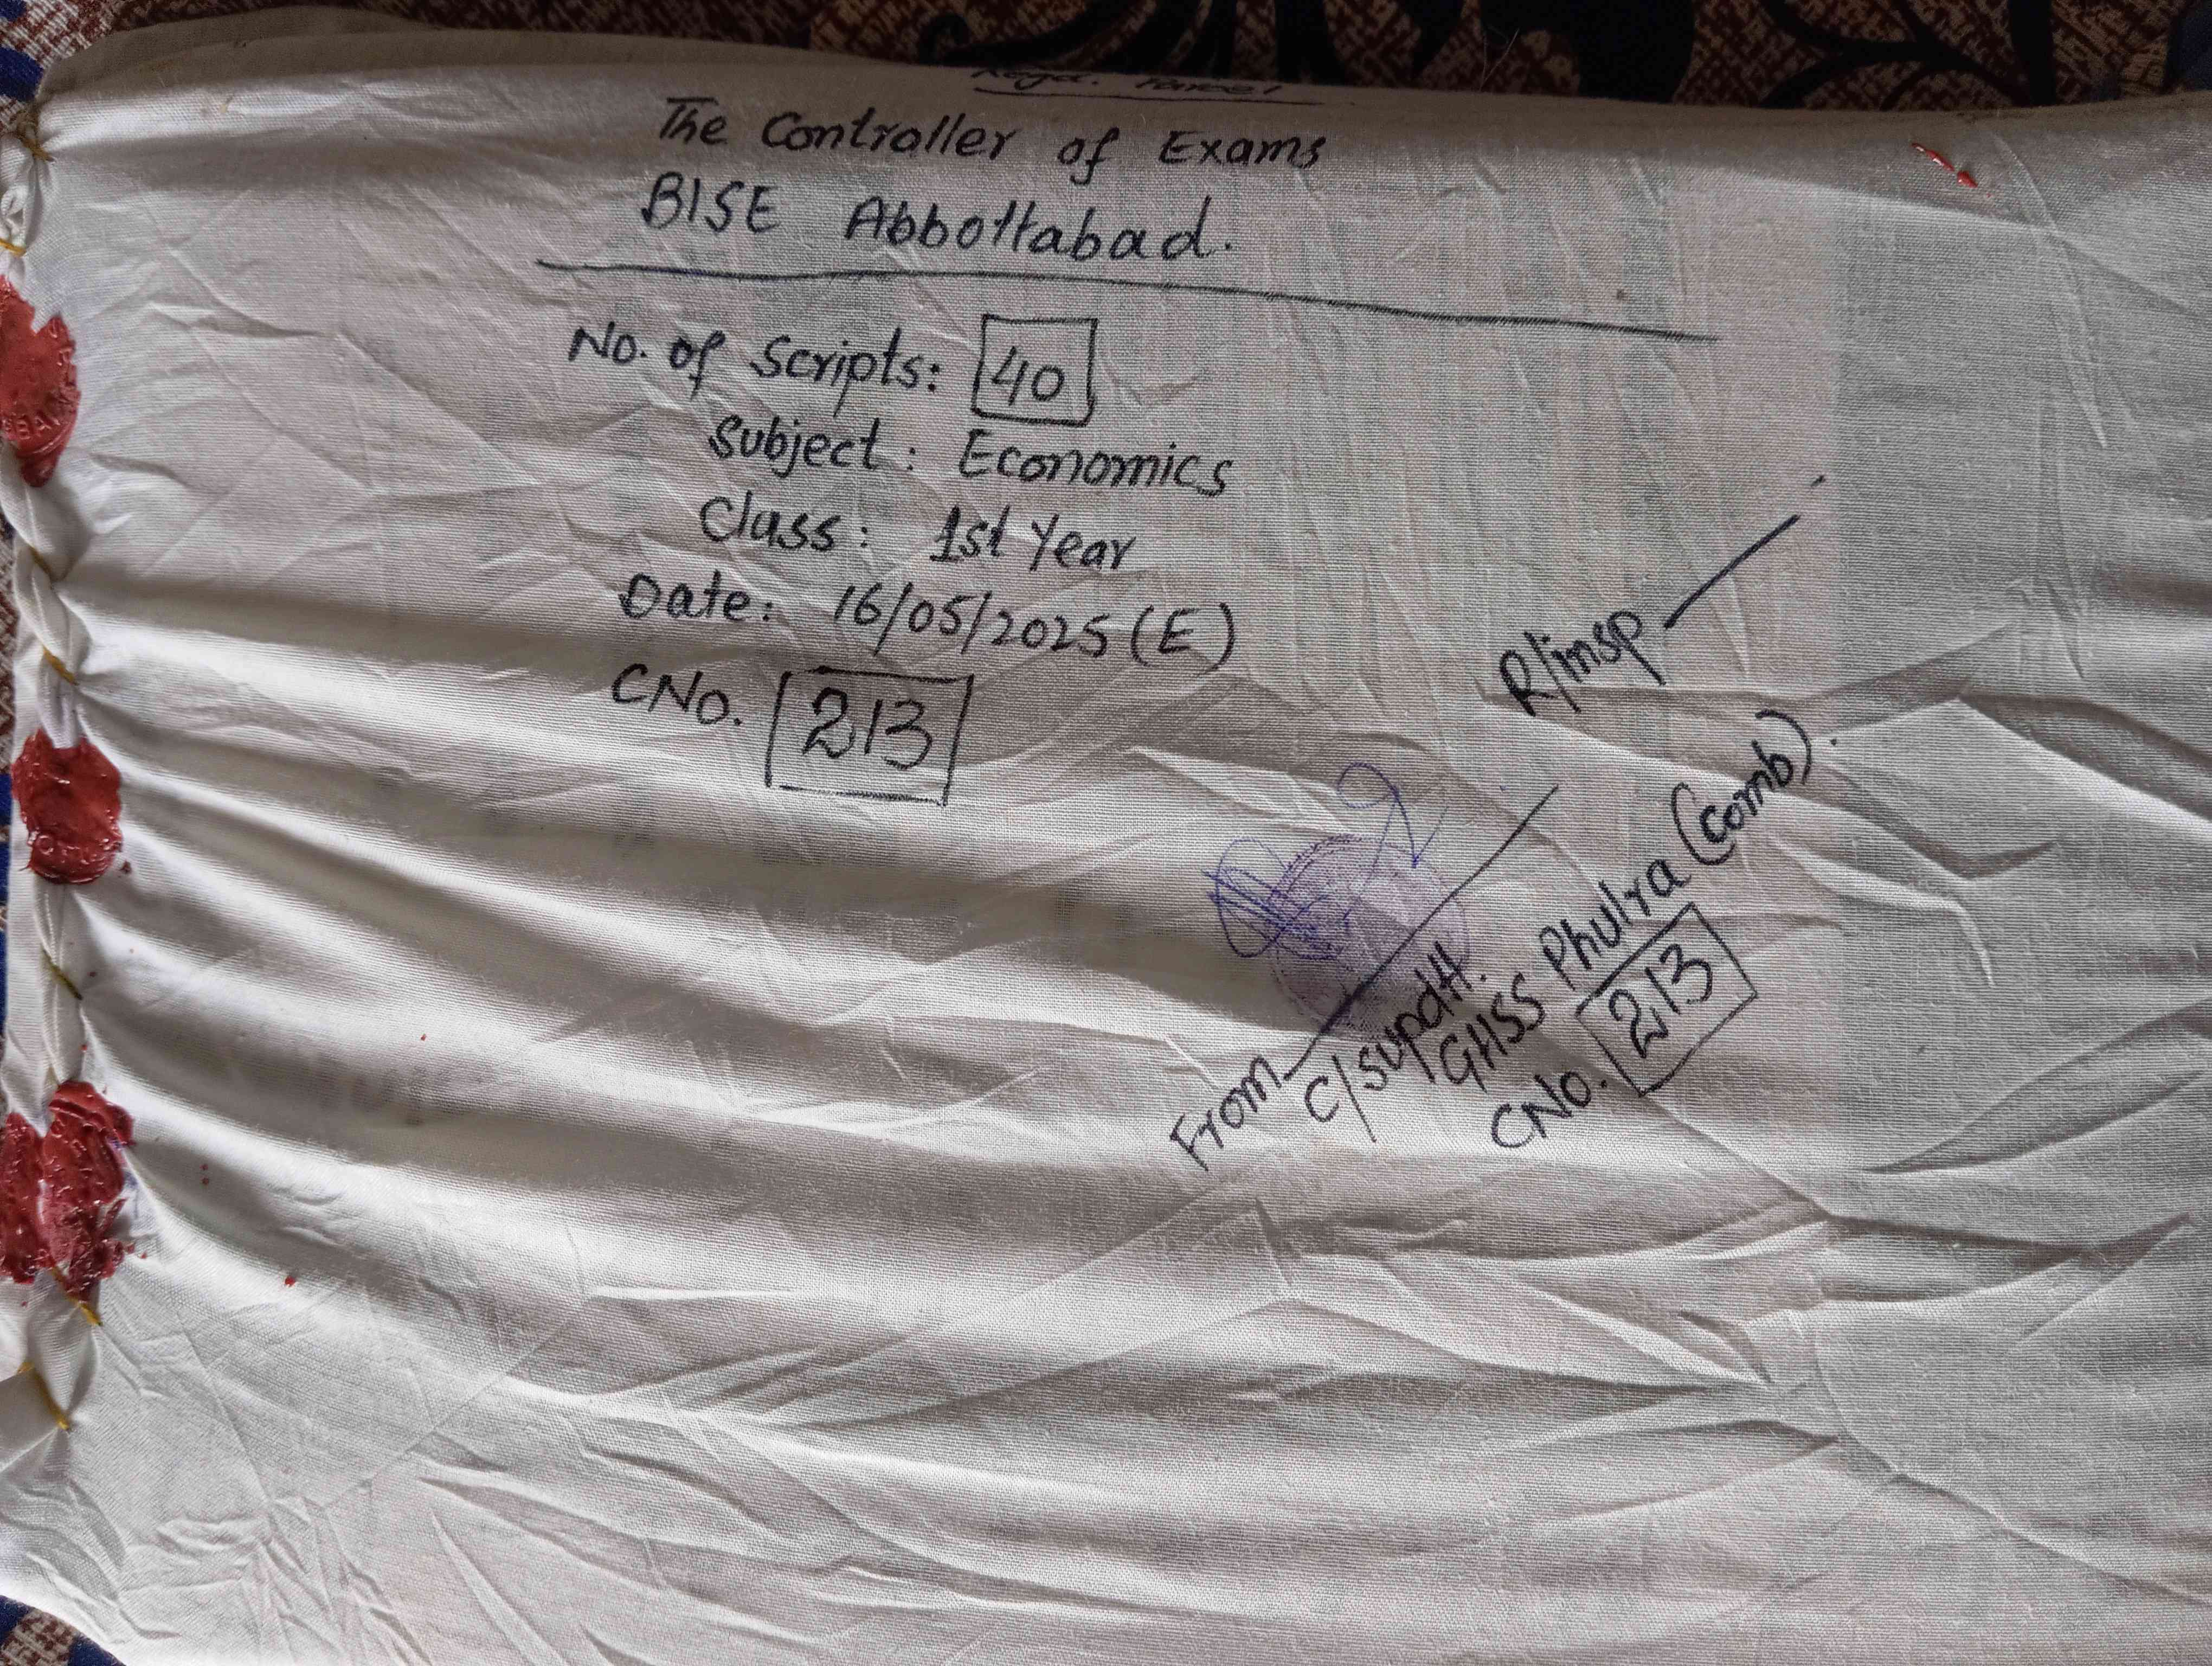 Regd. Parcel
The Controller of Exams
BISE Abbottabad.
No. of Scripts: 40
Subject: Economics
Class: 1st Year
Date: 16/05/2025 (E)
CNo. 213
R/insp
From
C/supdtt.
GHSS Phulra (Comb).
CNo. 213